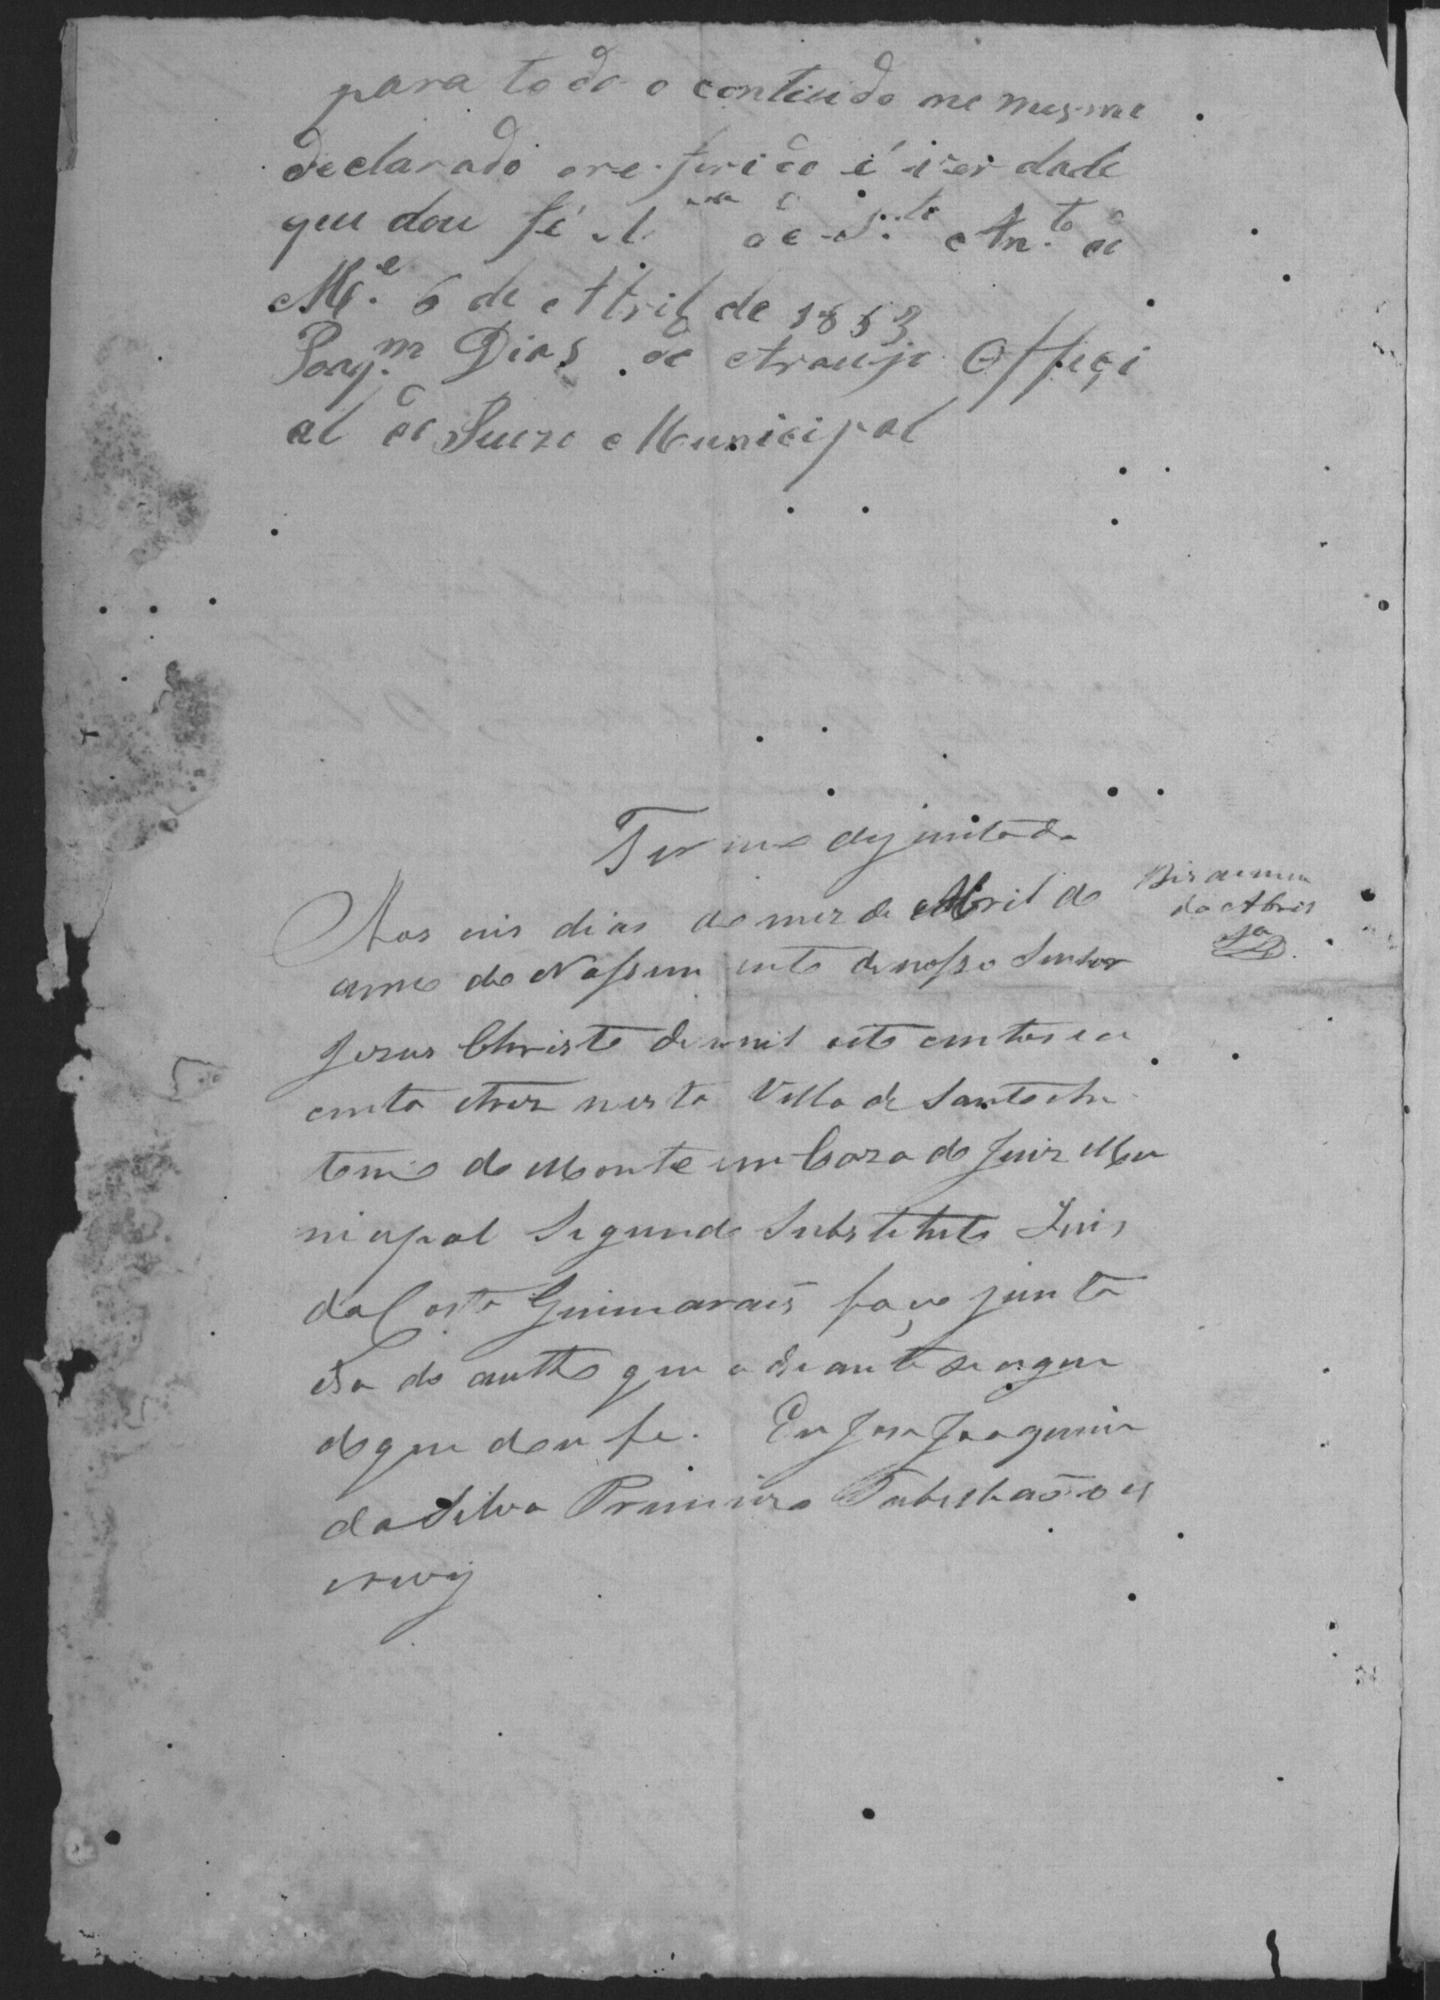 para todo o contiudo no mesmo
declarado oreferido é verdade
que dou fé V.ª de S.to An.to do
M.e 6 de Abril de 1853
Joaq.m Dias de Araujo Offeci
al do Juizo Municipal
Termo dejuntada
Aos seis dias do mez de Abril do
anno do Nassim ento denosso Senhor
Jesus Christo demil oito centos ecin
coenta etrez nesta Villa de Santo An
tonio do Monte em Caza do Juiz Mu
nicipal Segundo Substituto Luis
da Costa Guimaraẽs faço junta
da do autto que adiante sesegue
doque dou fe. Eu Jose Joaquim
da Silva Primeiro Tabelliaõ o es
crevy
do Abril